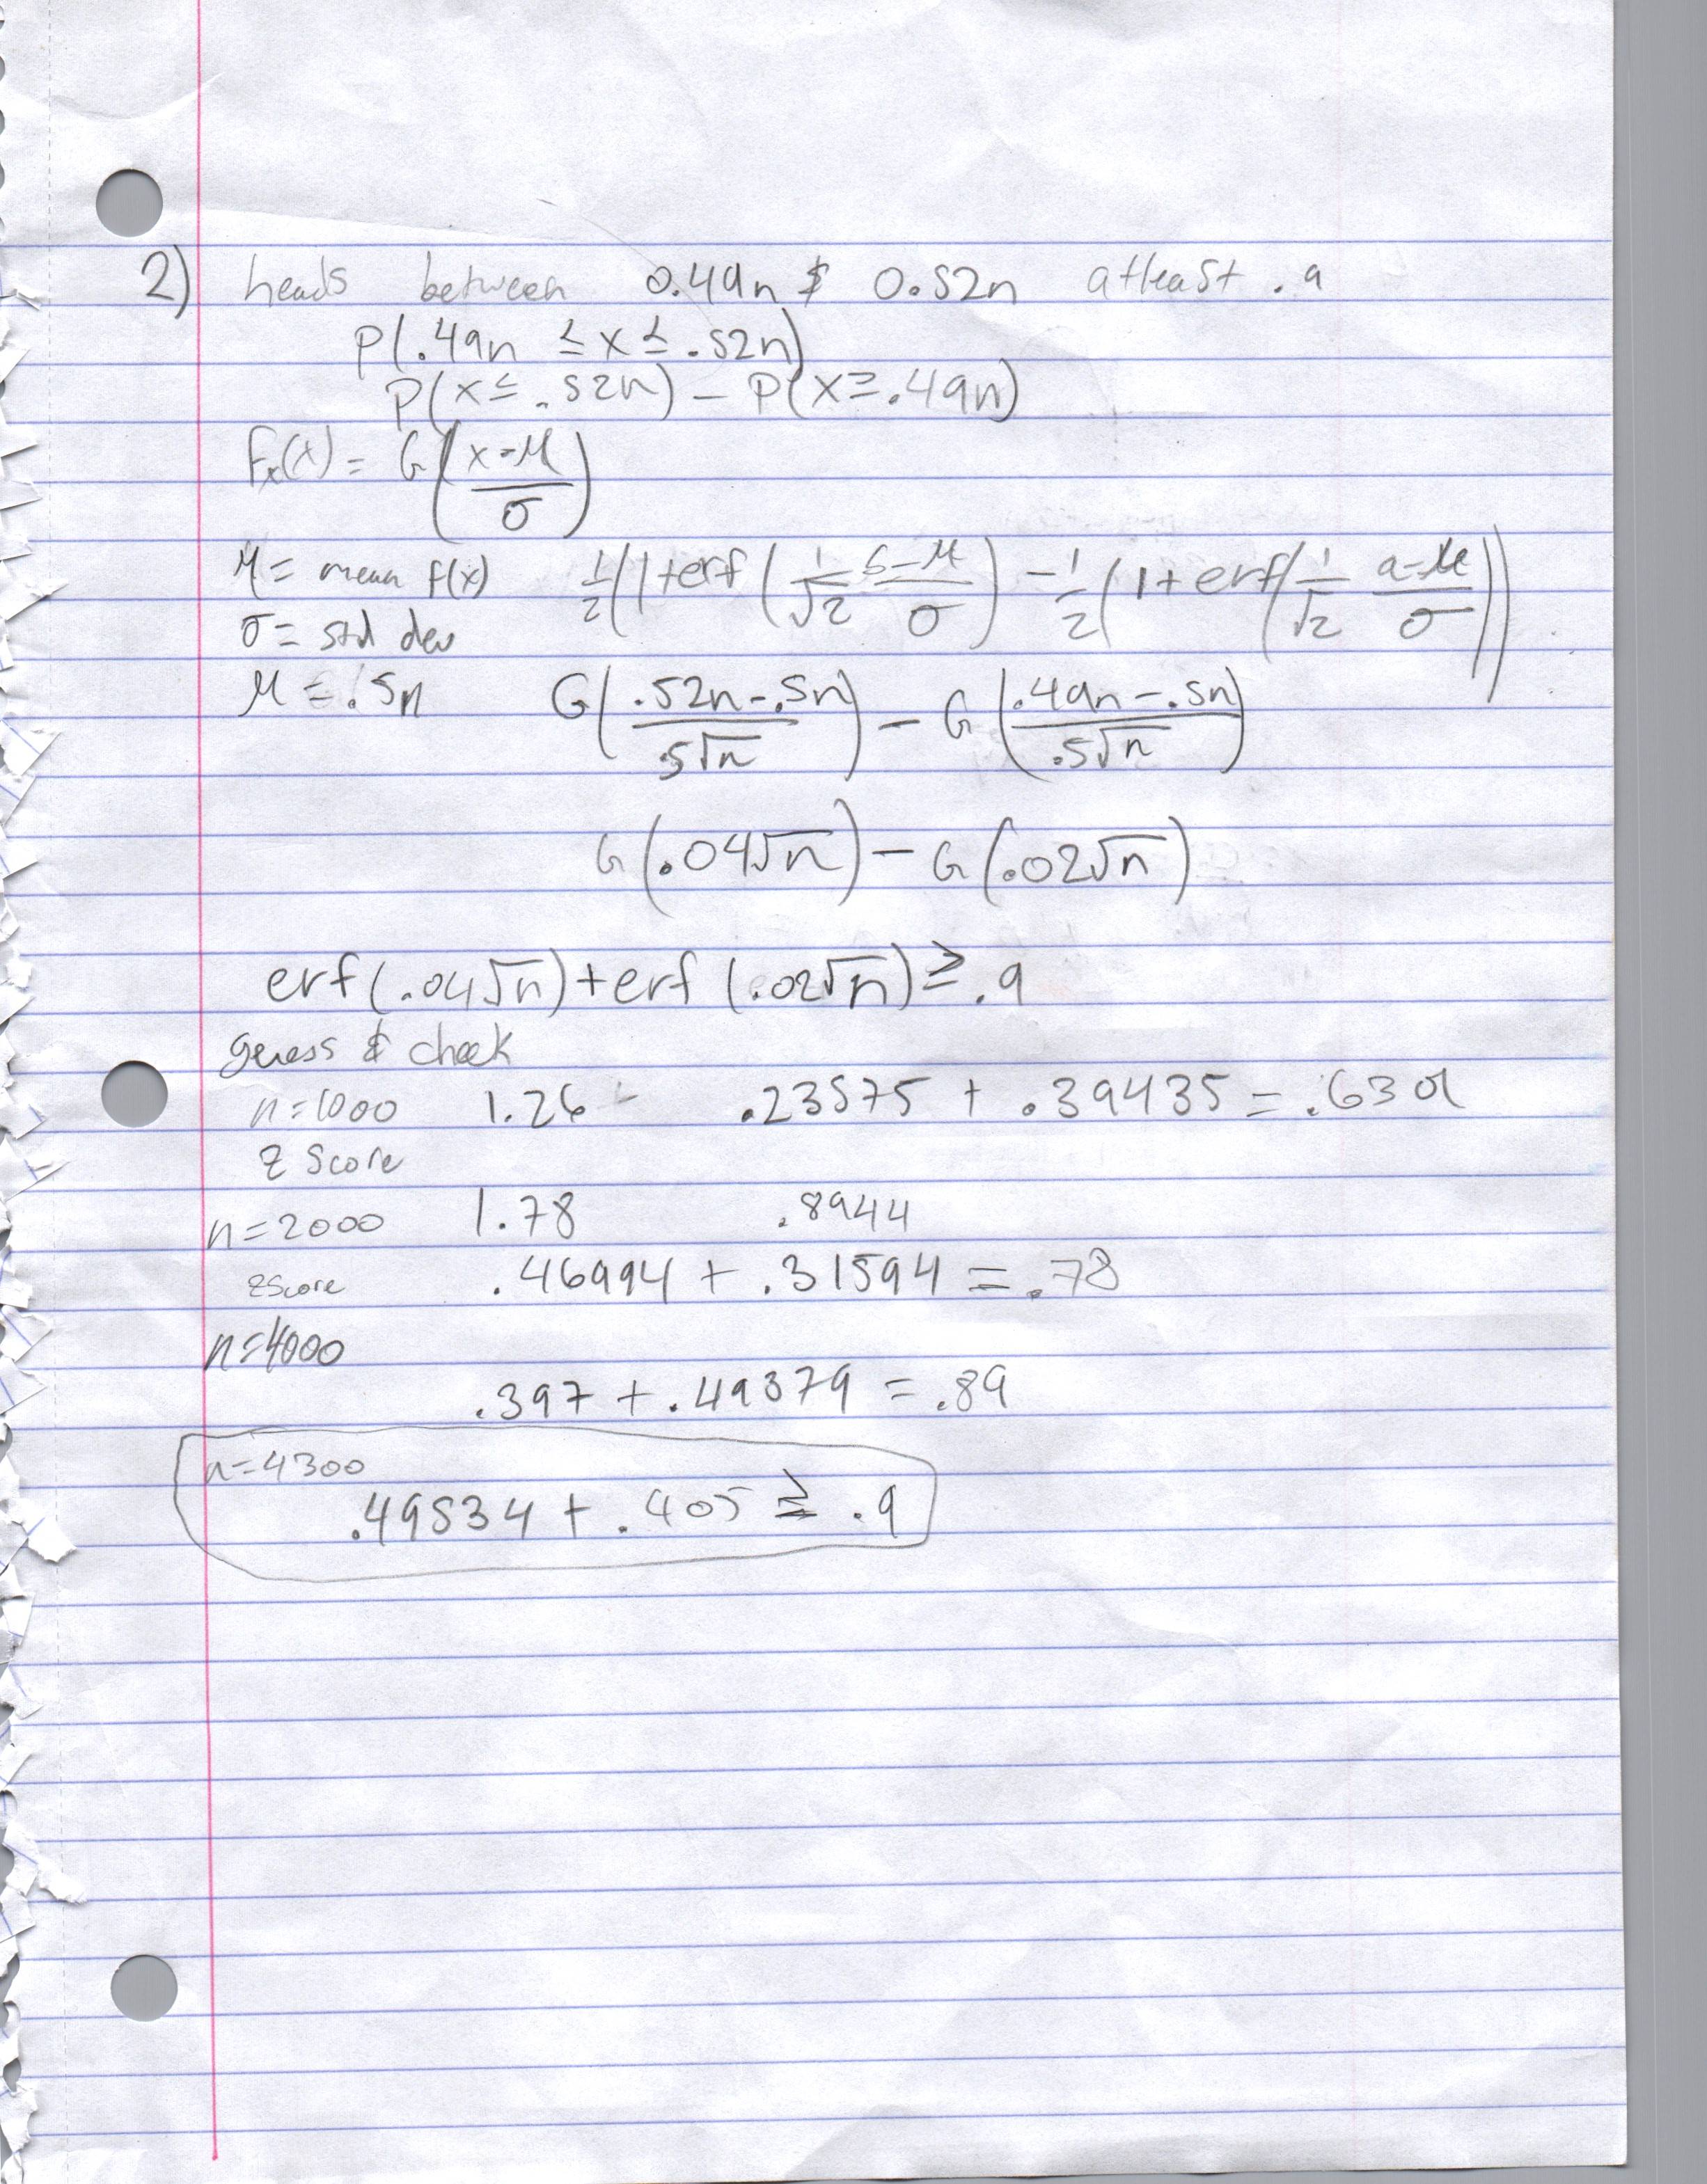 2) heads between 0.49n & 0.52n atleast .9
P(.49n ≤ x ≤ .52n)
P(x ≤ .52n) - P(x ≥ .49n)
Fx(x) = G((x-μ)/σ)
μ = mean f(x) 1/2(1+erf(1/√2 (b-μ)/σ) - 1/2(1+erf(1/√2 (a-μ)/σ))
σ = std dev
μ = .5n G((.52n-.5n)/(.5√n)) - G((.49n-.5n)/(.5√n))
G(.04√n) - G(.02√n)
erf(.04√n)+erf(.02√n) ≥ .9
guess & check
n=1000 1.26 - .23575 + .39435 = .6301
Z Score
n=2000 1.78 .8944
zscore .46994 + .31594 = .78
n=4000
.397 + .49379 = .89
n=4300
.49534 + .405 ≥ .9